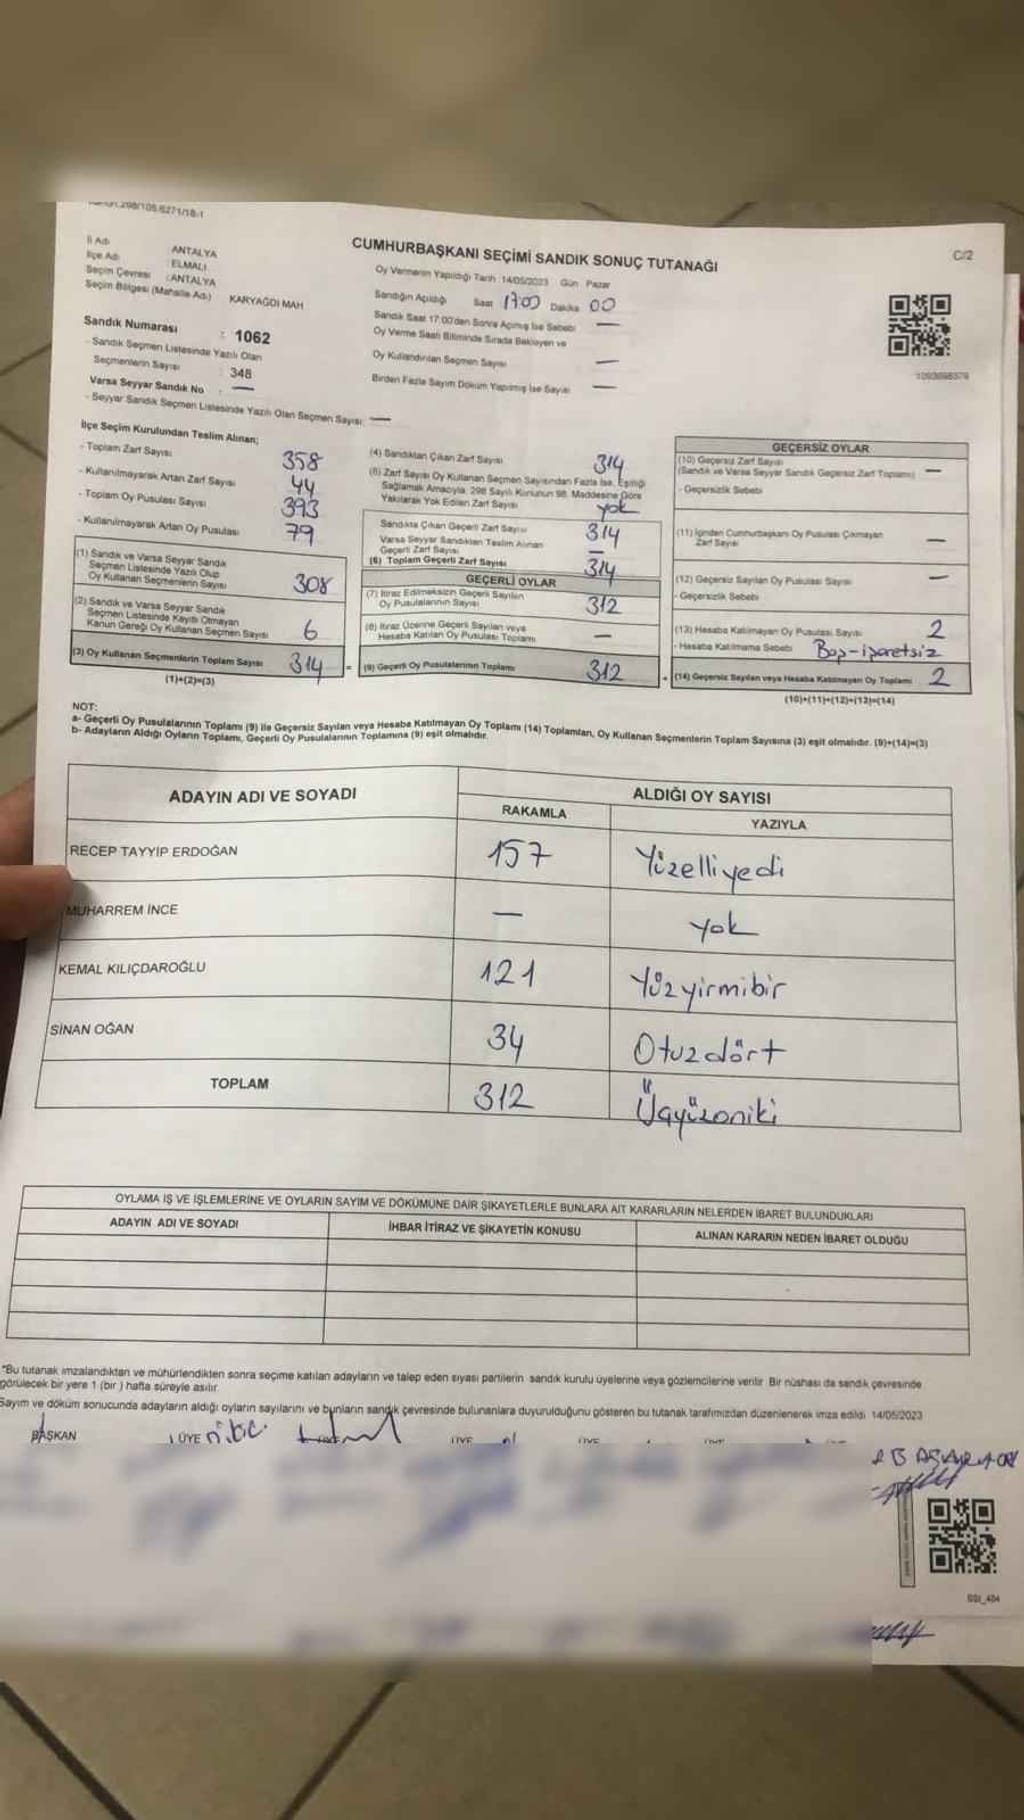 İl Adı : ANTALYA
İlçe Adı : ELMALI
Seçim Çevresi : ANTALYA
Seçim Bölgesi (Mahalle Adı) KARYAĞDI MAH
Sandık Numarası : 1062
- Sandık Seçmen Listesinde Yazılı Olan
Seçmenlerin Sayısı : 348
Varsa Seyyar Sandık No : —
- Seyyar Sandık Seçmen Listesinde Yazılı Olan Seçmen Sayısı: —
CUMHURBAŞKANI SEÇİMİ SANDIK SONUÇ TUTANAĞI
C/2
Oy Vermenin Yapıldığı Tarih :14/05/2023 Gün Pazar
Sandığın Açıldığı Saat 17:00 Dakika 00
Sandık Saat 17:00'den Sonra Açılmış İse Sebebi —
Oy Verme Saati Bitiminde Sırada Bekleyen ve
Oy Kullandırılan Seçmen Sayısı —
Birden Fazla Sayım Döküm Yapılmış İse Sayısı —
İlçe Seçim Kurulundan Teslim Alınan;
- Toplam Zarf Sayısı 358
- Kullanılmayarak Artan Zarf Sayısı 44
- Toplam Oy Pusulası Sayısı 393
- Kullanılmayarak Artan Oy Pusulası 79
(1) Sandık ve Varsa Seyyar Sandık
Seçmen Listesinde Yazılı Olup
Oy Kullanan Seçmenlerin Sayısı 308
(2) Sandık ve Varsa Seyyar Sandık
Seçmen Listesinde Kayıtlı Olmayan
Kanun Gereği Oy Kullanan Seçmen Sayısı 6
(3) Oy Kullanan Seçmenlerin Toplam Sayısı 314
(1)+(2)=(3)
(4) Sandıktan Çıkan Zarf Sayısı 314
(5) Zarf Sayısı Oy Kullanan Seçmen Sayısından Fazla İse, Eşitliği
Sağlamak Amacıyla, 298 Sayılı Kanunun 98. Maddesine Göre
Yakılarak Yok Edilen Zarf Sayısı yok
Sandıkta Çıkan Geçerli Zarf Sayısı 314
Varsa Seyyar Sandıktan Teslim Alınan
Geçerli Zarf Sayısı —
(6) Toplam Geçerli Zarf Sayısı 314
GEÇERLİ OYLAR
(7) İtiraz Edilmeksizin Geçerli Sayılan
Oy Pusulalarının Sayısı 312
(8) İtiraz Üzerine Geçerli Sayılan veya
Hesaba Katılan Oy Pusulası Toplamı —
= (9) Geçerli Oy Pusulalarının Toplamı 312
GEÇERSİZ OYLAR
(10) Geçersiz Zarf Sayısı
(Sandık ve Varsa Seyyar Sandık Geçersiz Zarf Toplamı) —
- Geçersizlik Sebebi
(11) İçinden Cumhurbaşkanı Oy Pusulası Çıkmayan
Zarf Sayısı —
(12) Geçersiz Sayılan Oy Pusulası Sayısı —
- Geçersizlik Sebebi
(13) Hesaba Katılmayan Oy Pusulası Sayısı 2
- Hesaba Katılmama Sebebi Boş-işaretsiz
+ (14) Geçersiz Sayılan veya Hesaba Katılmayan Oy Toplamı 2
(10)+(11)+(12)+(13)=(14)
NOT:
a- Geçerli Oy Pusulalarının Toplamı (9) ile Geçersiz Sayılan veya Hesaba Katılmayan Oy Toplamı (14) Toplamları, Oy Kullanan Seçmenlerin Toplam Sayısına (3) eşit olmalıdır. (9)+(14)=(3)
b- Adayların Aldığı Oyların Toplamı, Geçerli Oy Pusulalarının Toplamına (9) eşit olmalıdır.
ADAYIN ADI VE SOYADI
ALDIĞI OY SAYISI
RAKAMLA YAZIYLA
RECEP TAYYİP ERDOĞAN 157 Yüzelliyedi
MUHARREM İNCE — yok
KEMAL KILIÇDAROĞLU 121 Yüzyirmibir
SİNAN OĞAN 34 Otuzdört
TOPLAM 312 Üçyüzoniki
OYLAMA İŞ VE İŞLEMLERİNE VE OYLARIN SAYIM VE DÖKÜMÜNE DAİR ŞİKAYETLERLE BUNLARA AİT KARARLARIN NELERDEN İBARET BULUNDUKLARI
ADAYIN ADI VE SOYADI İHBAR İTİRAZ VE ŞİKAYETİN KONUSU ALINAN KARARIN NEDEN İBARET OLDUĞU
*Bu tutanak imzalandıktan ve mühürlendikten sonra seçime katılan adayların ve talep eden siyasi partilerin sandık kurulu üyelerine veya gözlemcilerine verilir. Bir nüshası da sandık çevresinde
görülecek bir yere 1 (bir) hafta süreyle asılır.
Sayım ve döküm sonucunda adayların aldığı oyların sayılarını ve bunların sandık çevresinde bulunanlara duyurulduğunu gösteren bu tutanak tarafımızdan düzenlenerek imza edildi. 14/05/2023
BAŞKAN ÜYE